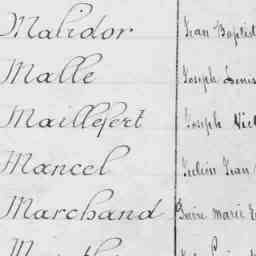 Malidor Jean Baptist
Malle Joseph Denis
Maillefert Joseph Vict
Mancel Jean
Marchand Pierre Marie E